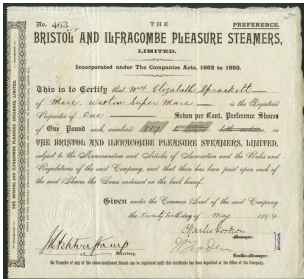 No. 463
THE
PREFERENCE.
BRISTOL AND ILFRACOMBE PLEASURE STEAMERS,
LIMITED.
Incorporated under The Companies Acts, 1862 to 1893.
This is to Certify that Mrs Elizabeth Sprackett
of Mere, Weston Super Mare is the Registered
Proprietor of One Seven per Cent. Preference Shares
of One Pound each, numbered 887
THE BRISTOL AND ILFRACOMBE PLEASURE STEAMERS, LIMITED,
subject to the Memorandum and Articles of Association and the Rules and
Regulations of the said Company, and that there has been paid upon each of
the said Shares the Sum endorsed on the back hereof.
Given under the Common Seal of the said Company
the day of May 1894
Secretary.
No Transfer of any of the above-mentioned Shares can be registered until this Certificate has been deposited at the Office of the Company.